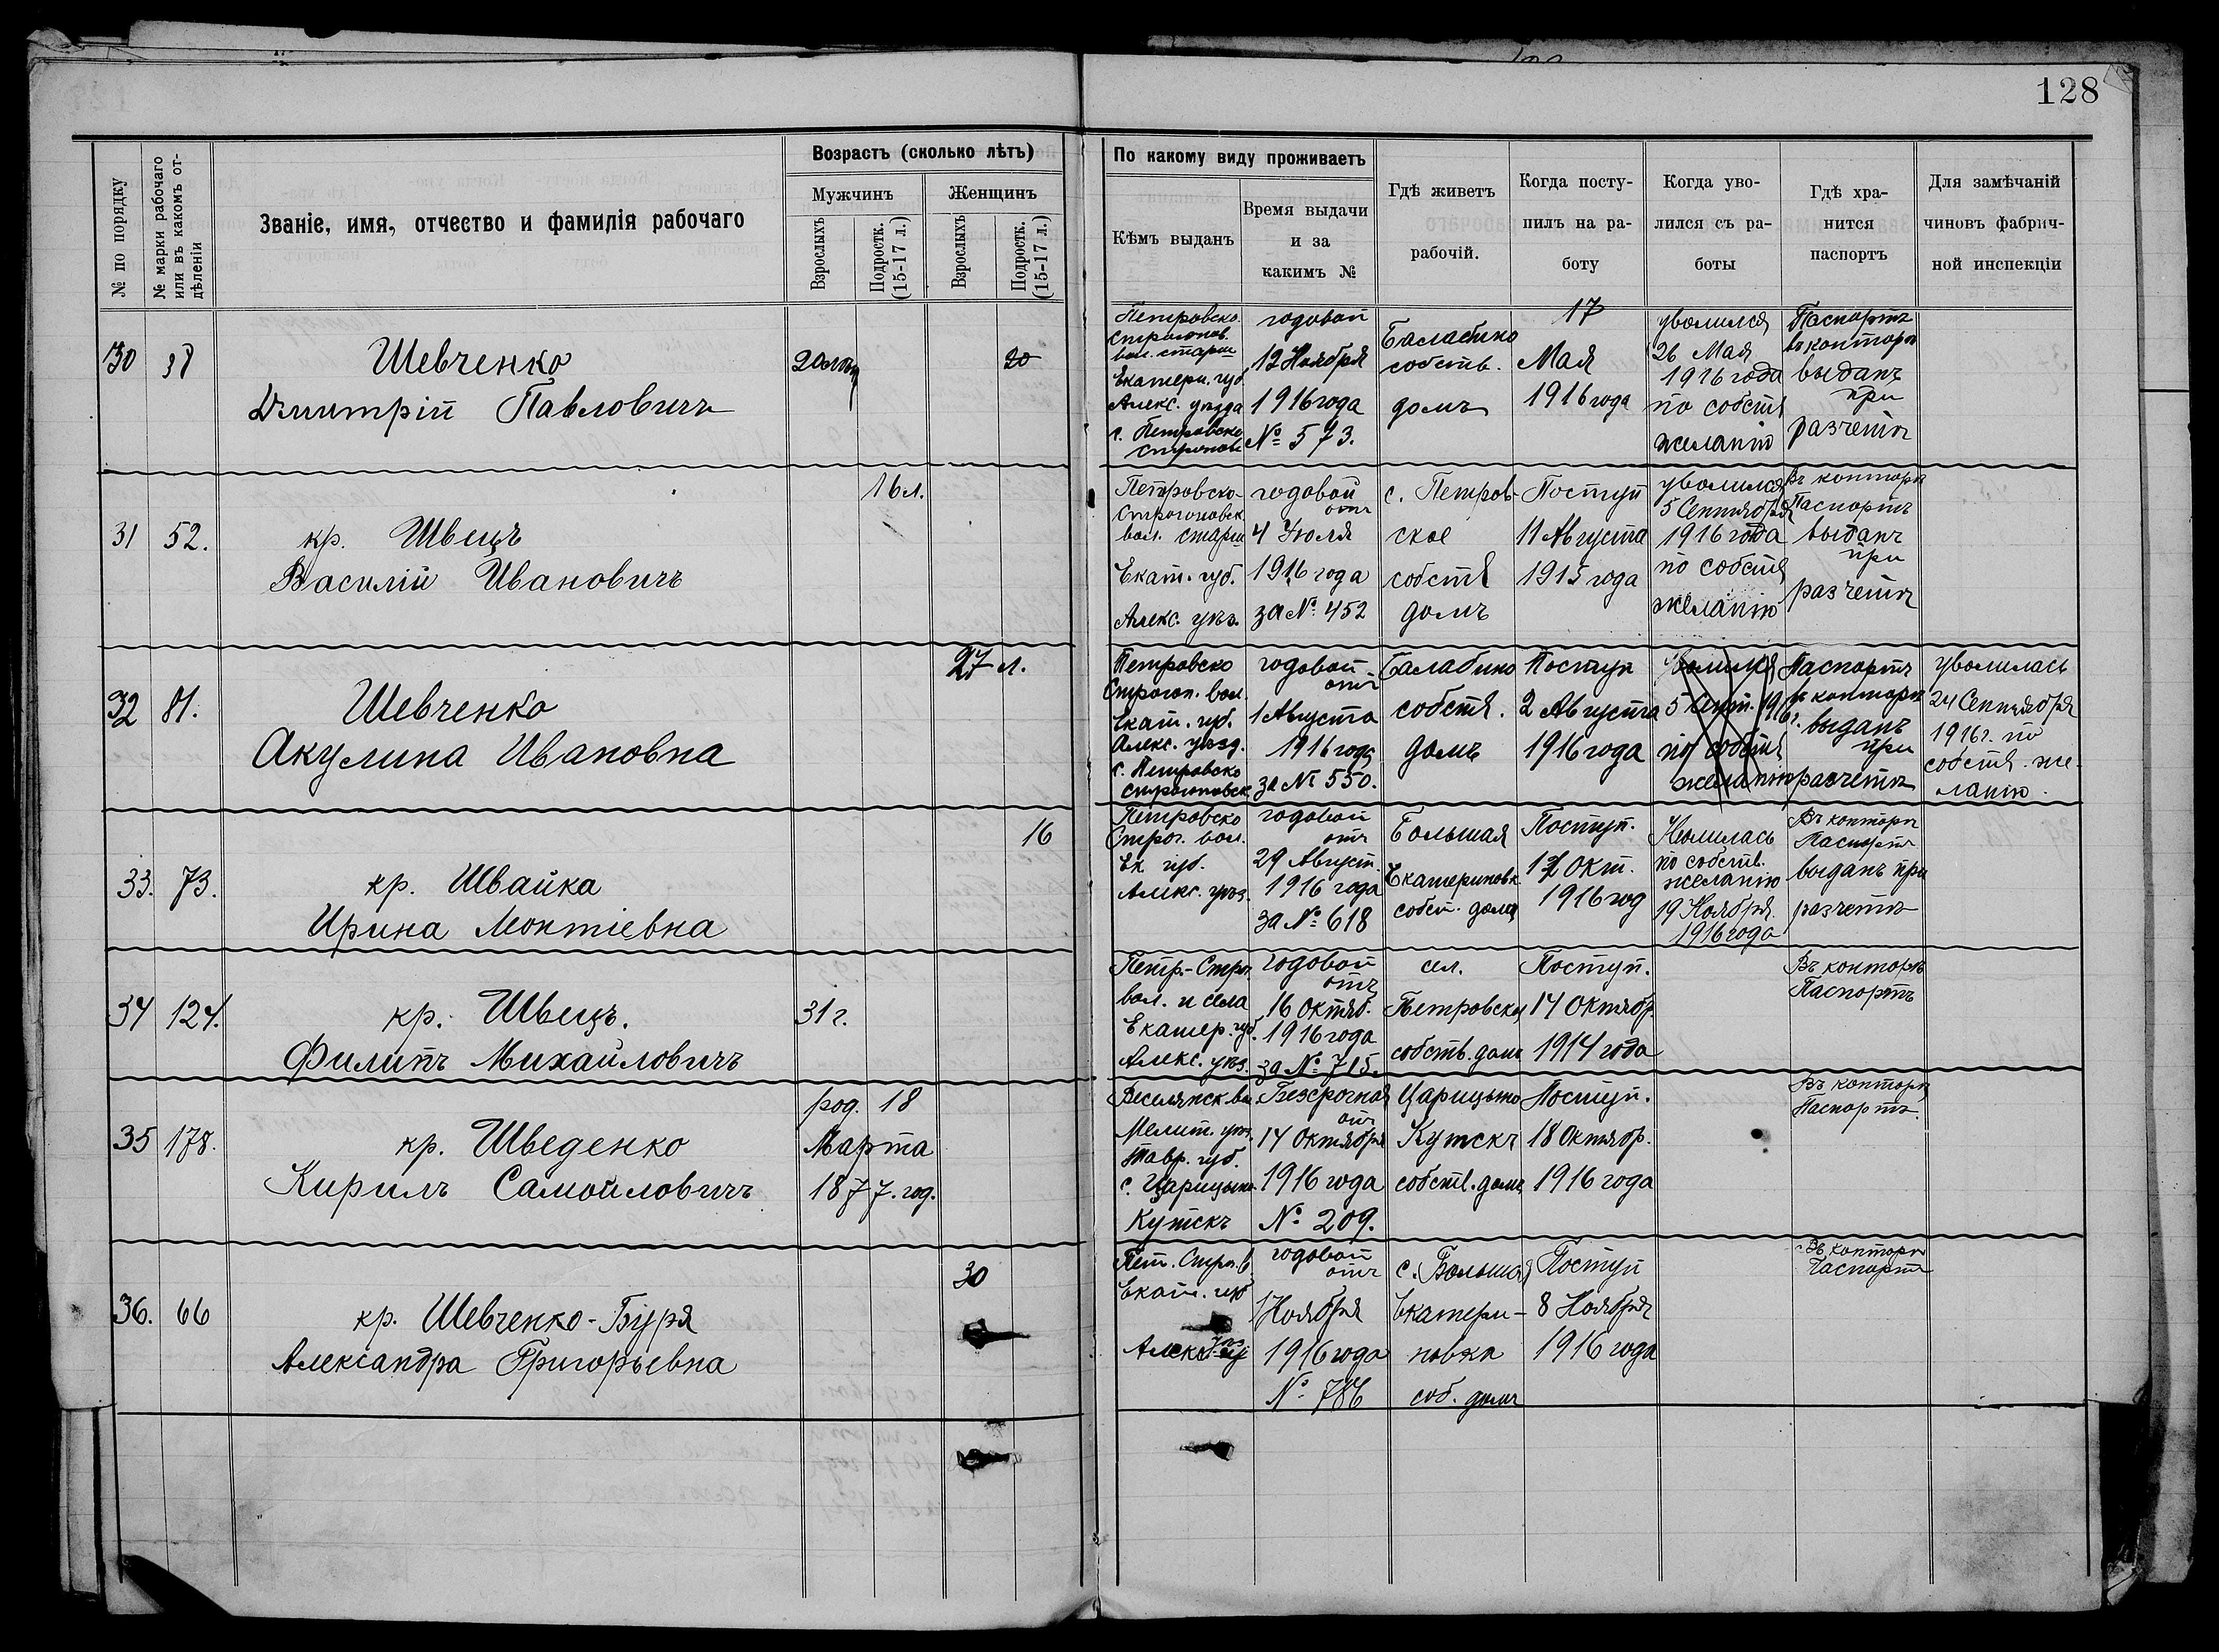 128
№ по порядку
№ марки рабочаго или въ какомъ отдѣленіи
Званіе, имя, отчество и фамилія рабочаго
Возрастъ (сколько лѣтъ)
Мужчинъ
Женщинъ
Взрослыхъ
Подростк. (15-17 л.)
Взрослыхъ
Подростк. (15-17 л.)
По какому виду проживаетъ
Кѣмъ выданъ
Время выдачи
и за
какимъ №
Гдѣ живетъ
рабочій.
Когда посту-
пилъ на ра-
боту
Когда уво-
лился съ ра-
боты
Гдѣ хра-
нится
паспортъ
Для замѣчаній
чиновъ фабрич-
ной инспекціи
30
38
Шевченко
Дмитрій Павловичъ
20
Петровско
вол. старш
Екатери. губ
Алекс. уѣзда
с. Петровско
годовой
12 Ноября
1916 года
№ 573.
Балабино
собств.
домъ
17
Мая
1916 года
уволился
26 Мая
1916 года
по собств
желанію
Паспортъ
въ конторѣ
выданъ
при
разчетѣ
31
52.
кр. Швецъ
Василій Ивановичъ
16 л.
Петровско-
Строгоновск.
вол. старш
Екат. губ.
Алекс. уѣз.
годовой
отъ
4 Іюля
1916 года
за № 452
с. Петров-
ское
собств
домъ
Поступ
11 Августа
1915 года
уволился
5 Сентября
1916 года
по собств
желанію
Въ конторѣ
Паспортъ
выданъ
при
разчетѣ
32
81.
Шевченко
Акулина Ивановна
27 л.
Петровско
Строгон. вол.
Екат. губ.
Алекс. уѣзд.
с. Петровско
Строгоновск
годовой
отъ
1 Августа
1916 года
за № 550.
Балабино
собств.
домъ
Поступ
2 Августа
1916 года
уволился
5 Сент. 1916 г.
по собств
желанію
Паспортъ
въ конторѣ
выданъ
при
разчетѣ
уволилась
24 Сентября
1916 г. по
собств. же-
ланію.
33.
73.
кр. Швайка
Ирина Леонтіевна
16
Петровско
Строг. вол.
Ек губ.
Алекс. уѣз.
годовой
отъ
29 Август.
1916 года
за № 618
Большая
Екатериновк.
собст. домъ
Поступ.
Окт.
1916 год
Уволилась
по собств.
желанію
19 Ноября
1916 года
Въ конторѣ
Паспортъ
выданъ при
разчетѣ
34
124.
кр. Швецъ.
Филипъ Михайловичъ
31 г.
Петр.-Стро.
вол. и села
Екатер. губ.
Алекс. уѣз.
годовой
отъ
16 Октяб.
1916 года
за № 715.
сел.
Петровское
собств. домъ
Поступ.
14 Октябр
1914 года
Въ конторѣ
Паспортъ
35
178.
кр. Шведенко
Кирилъ Самойловичъ
род. 18
Марта
1877. год.
Веселянск вол.
Мелит. уѣз.
Тавр. губ.
с. Царицыно
Кутскъ
Безсрочная
отъ
14 Октября
1916 года
№ 209.
Царицыно
Кутскъ
собств. домъ
Поступ.
18 Октябр.
1916 года
Въ конторѣ
Паспортъ.
36.
66
кр. Шевченко-Буря
Александра Григорьевна
30
Пет. Строг. в
Екат. губ
годовой
отъ
1 Ноября
1916 года
№ 786
с. Большая
Екатери-
новка
соб. домъ
Поступ
8 Ноября
1916 года
Въ конторѣ
Паспортъ